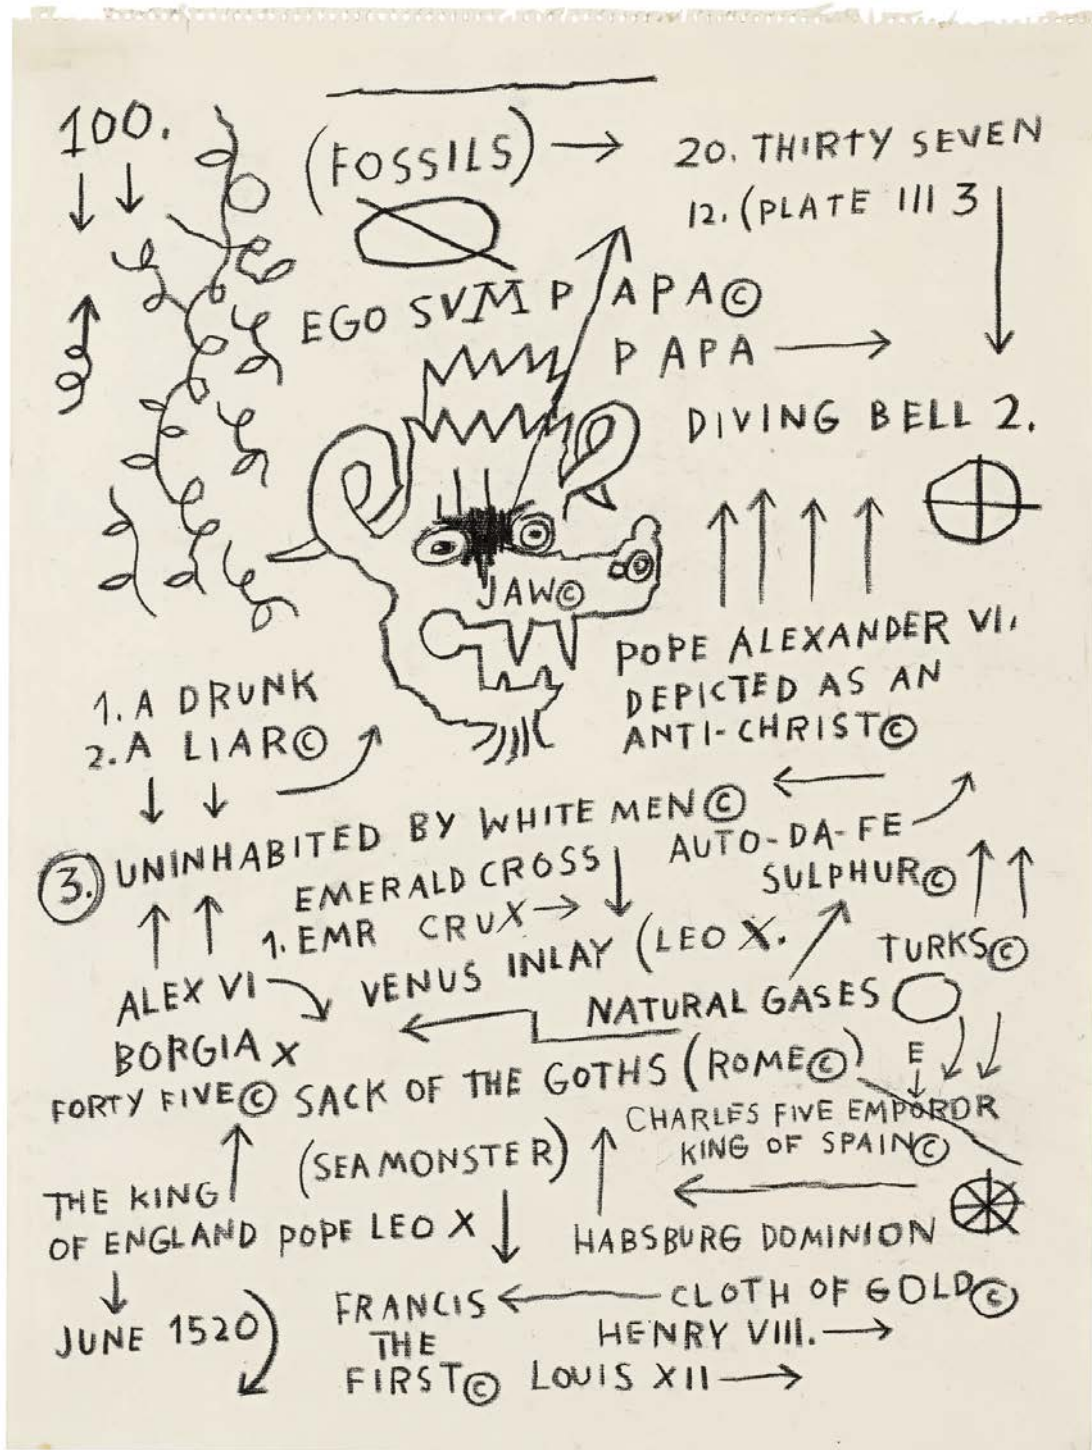 100.
(FOSSILS) → 20. THIRTY SEVEN
12. (PLATE III 3
EGO SVM PAPA©
PAPA →
DIVING BELL 2.
JAW©
POPE ALEXANDER VI.
DEPICTED AS AN
ANTI-CHRIST©
1. A DRUNK
2. A LIAR©
3. UNINHABITED BY WHITE MEN©
AUTO-DA-FE
SULPHUR©
EMERALD CROSS
1. EMR CRUX →
VENUS INLAY (LEO X.
TURKS©
ALEX VI
NATURAL GASES
BORGIA X
FORTY FIVE© SACK OF THE GOTHS (ROME©)
E
CHARLES FIVE EMPOROR
KING OF SPAIN©
(SEA MONSTER)
THE KING
OF ENGLAND POPE LEO X
HABSBURG DOMINION
JUNE 1520)
FRANCIS ← CLOTH OF GOLD©
THE
HENRY VIII. →
FIRST© LOUIS XII →